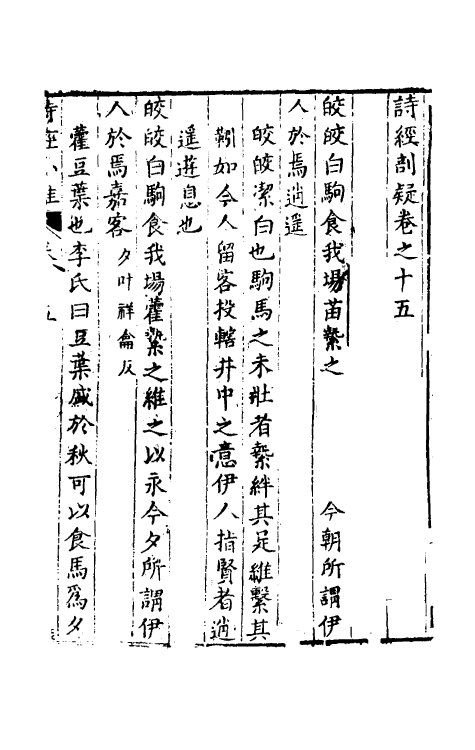 詩經剖疑卷之十五
皎皎白駒食我場苗縶之　今朝所謂伊
人於焉逍遥
皎皎潔白也駒馬之未壯者縶絆其足維繫其
靷如今人留客投轄井中之意伊人指賢者逍
遥遊息也
皎皎白駒食我場藿縶之維之以永今夕所謂伊
人於焉嘉客夕叶祥龠反
藿豆葉也李氏曰豆葉盛於秋可以食馬爲夕